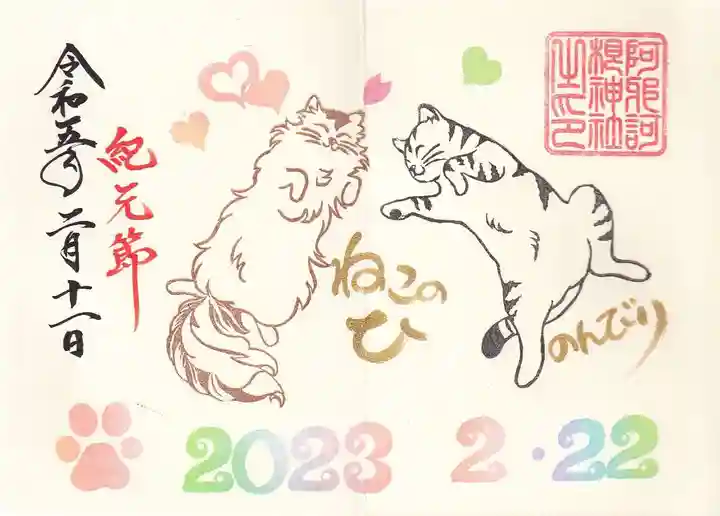 阿邪訶
根神社
之印
ねこの
ひ
のんびり
紀元節
令和五年二月十一日
2023 2・22